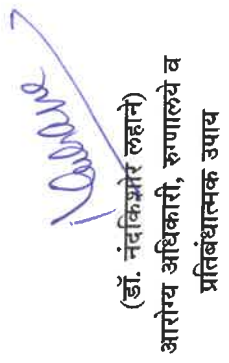 (डॉ. नंदकिशोर लहाने)
आरोग्य अधिकारी, रुग्णालये व
प्रतिबंधात्मक उपाय